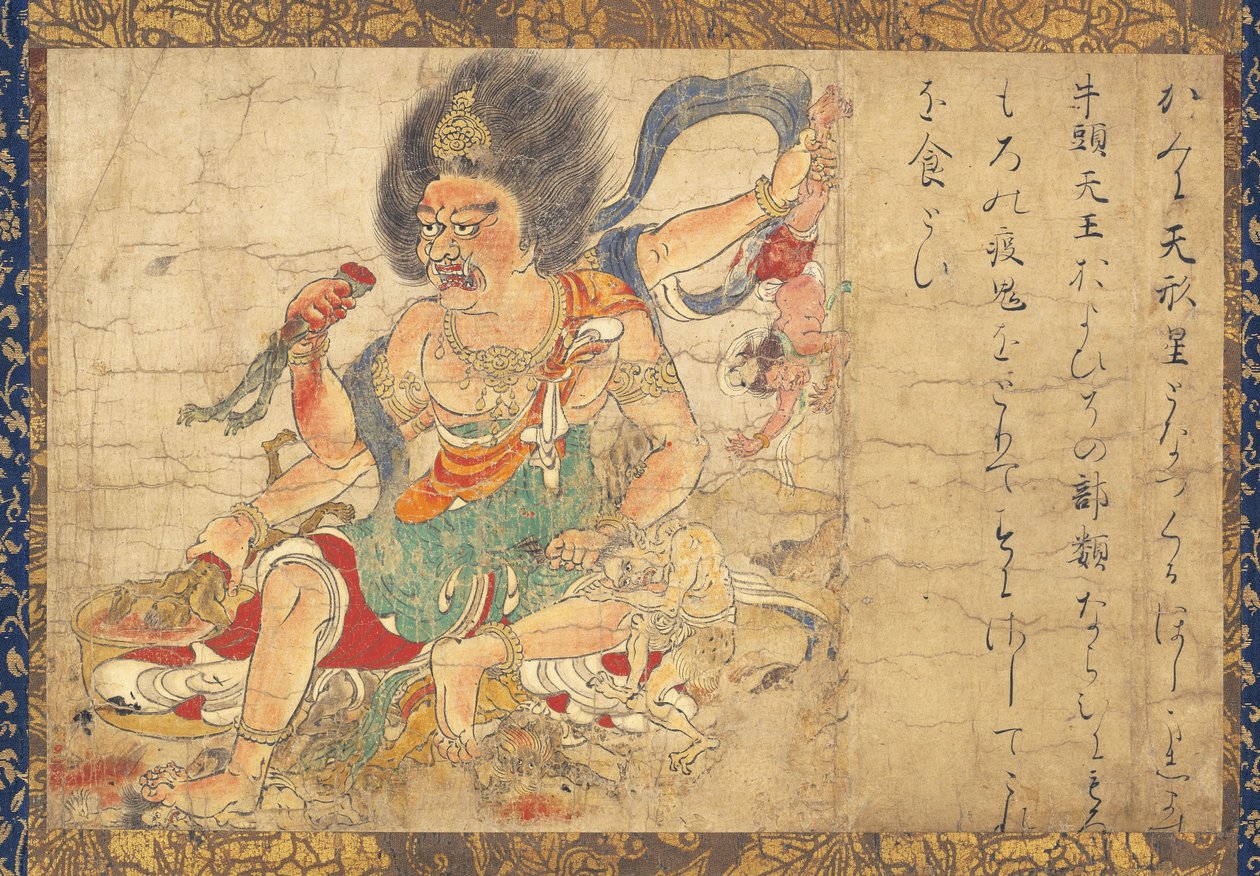 かみに天形星となつくるほしまします
牛頭天王およひその部類ならひにもろ
もろの疫鬼をとりてすにさしてこれ
を食とす